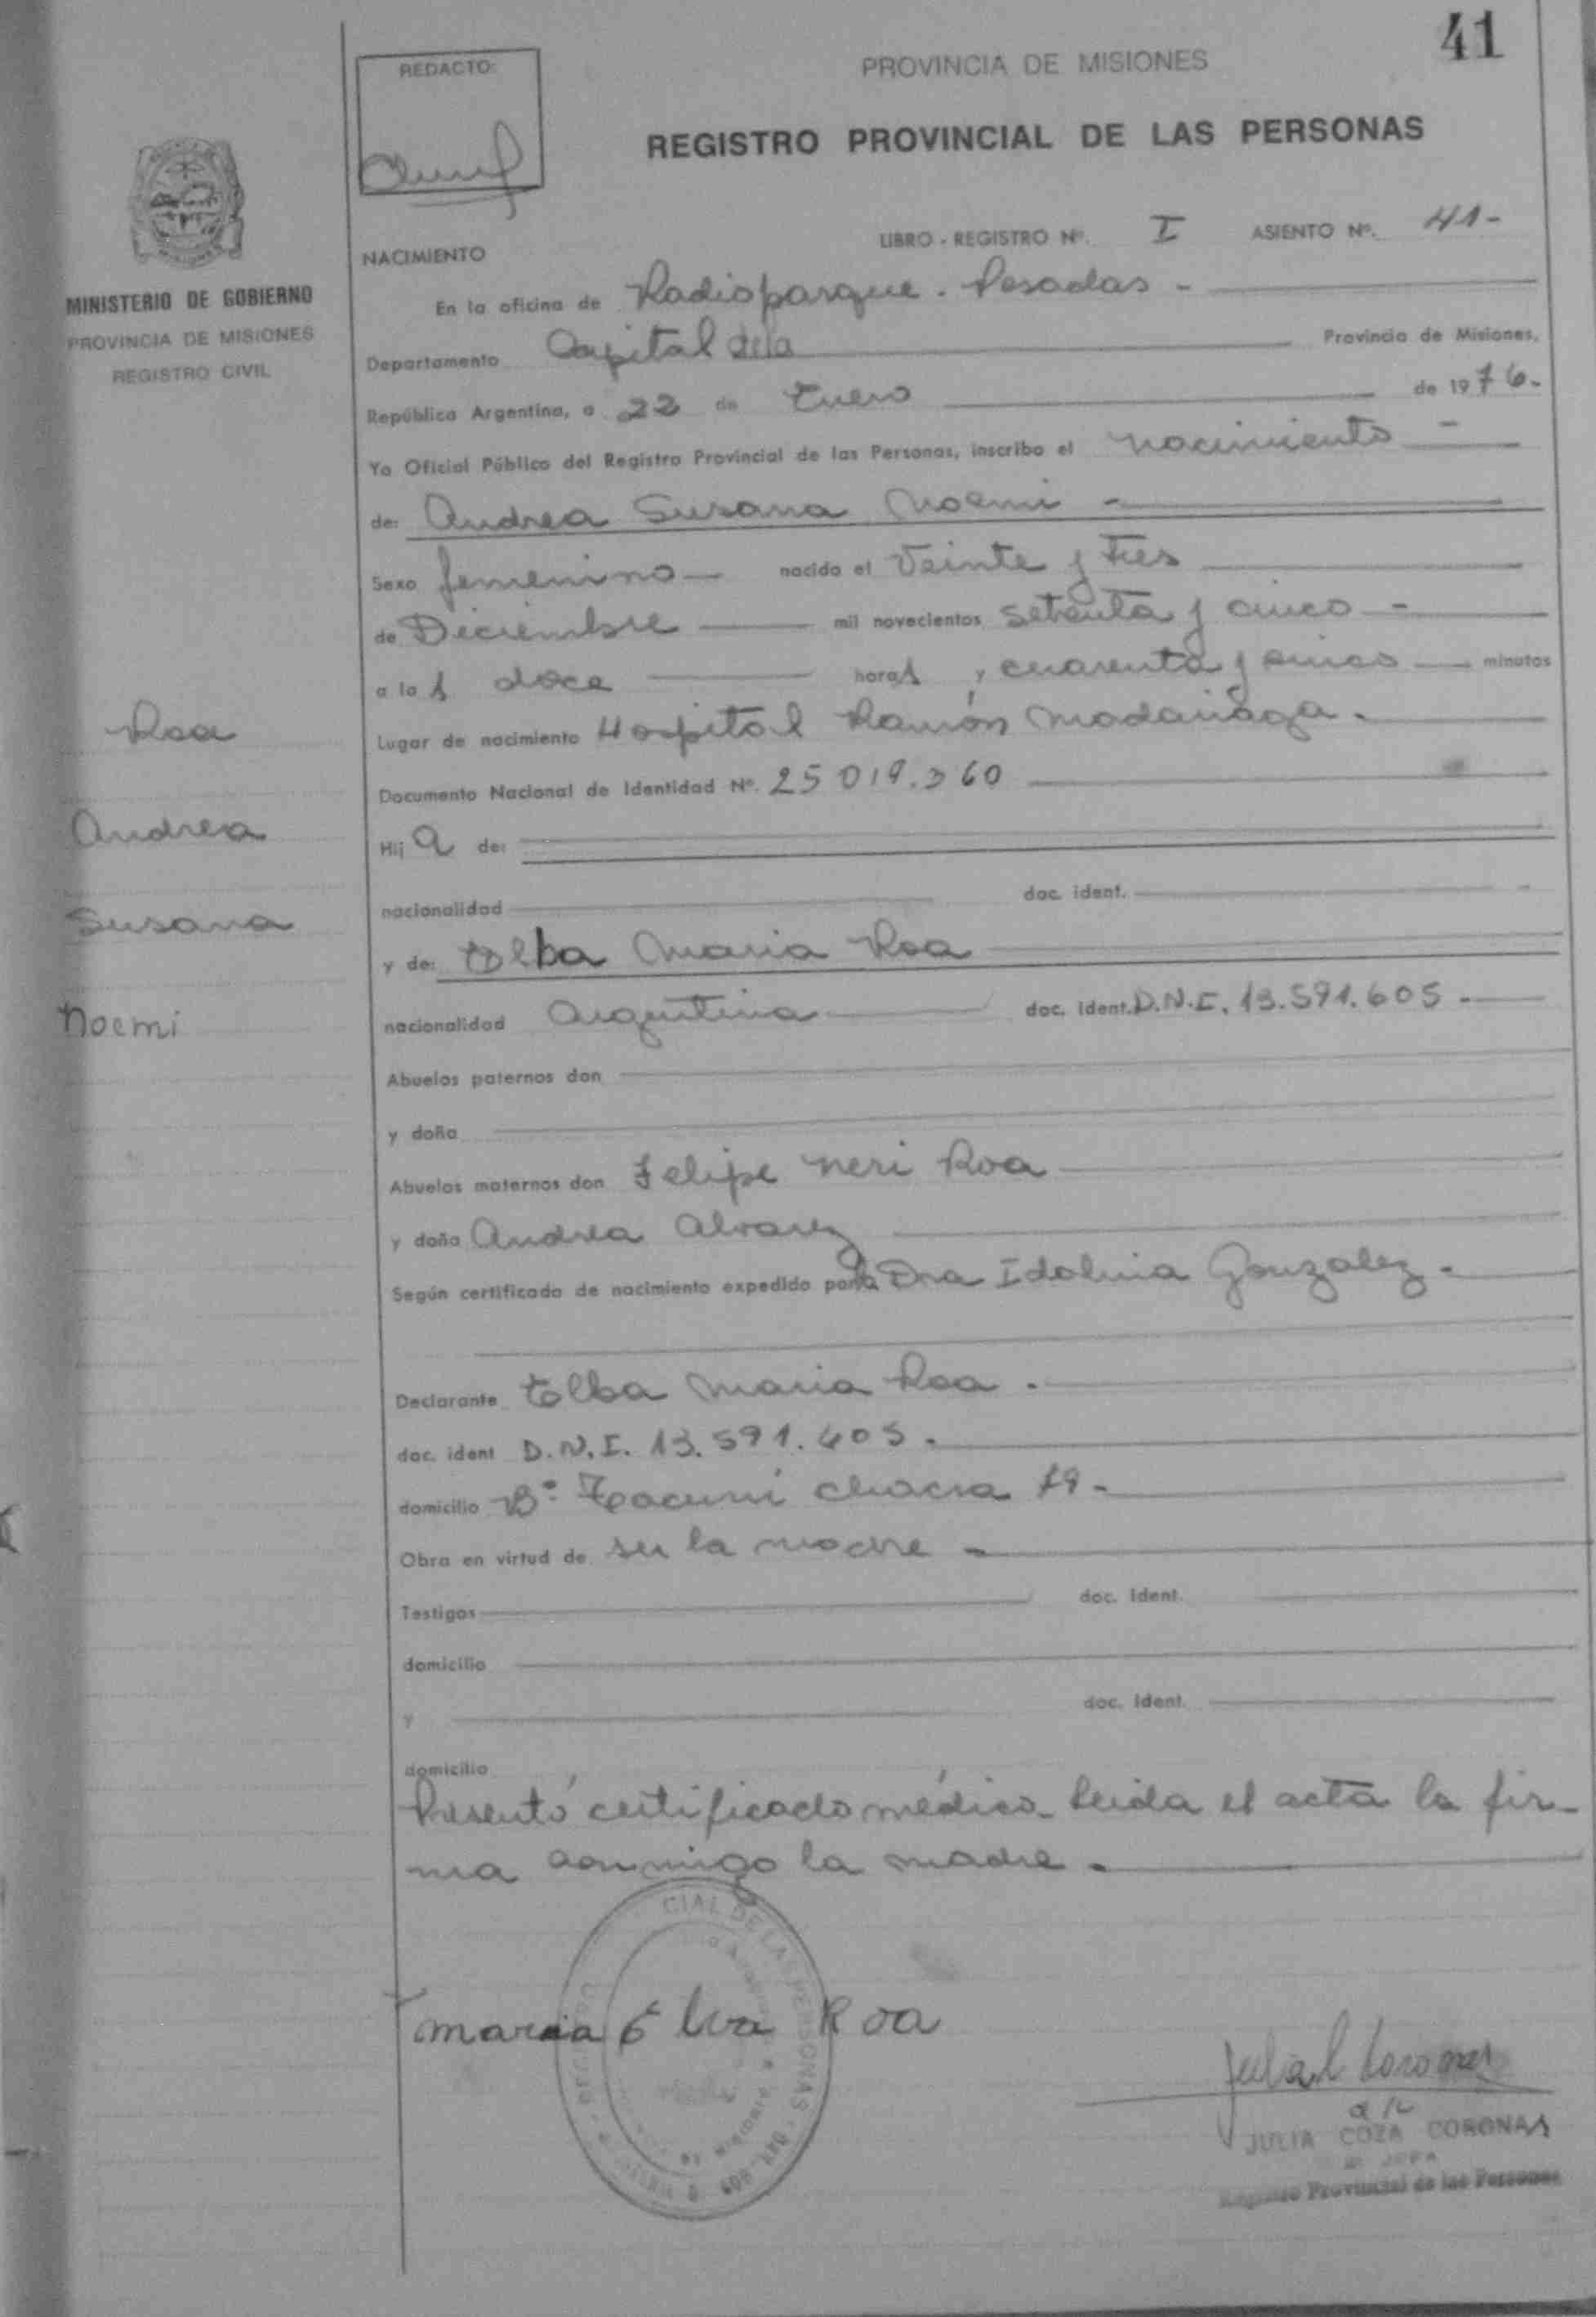 41
REDACTO:
PROVINCIA DE MISIONES
REGISTRO PROVINCIAL DE LAS PERSONAS
LIBRO - REGISTRO Nº. I ASIENTO Nº. 41-
NACIMIENTO
MINISTERIO DE GOBIERNO
PROVINCIA DE MISIONES
REGISTRO CIVIL
En la oficina de Radioparque. Posadas -
Departamento Capital dela Provincia de Misiones,
República Argentina, a 22 de Enero de 1976.
Yo Oficial Público del Registro Provincial de las Personas, inscribo el nacimiento -
de: Andrea Susana Noemi -
Sexo femenino nacido el Veinte y Tres
de Diciembre mil novecientos setenta y cinco -
a las doce horas y cuarenta y cinco minutos
Lugar de nacimiento Hospital Ramón Madariaga.
Documento Nacional de Identidad Nº. 25 019.360
Hija de:
nacionalidad doc. ident.
y de: Elba Maria Roa
nacionalidad Argentina doc. ident. D.N.I. 13.591.605.
Abuelos paternos don
y doña
Abuelos maternos don Felipe Neri Roa
y doña Andrea Alvarez
Según certificado de nacimiento expedido por la Dra Idolina Gonzalez.
Declarante Elba Maria Roa.
doc. ident D.N.I. 13.591.605.
domicilio Bº chacra 79-
Obra en virtud de ser la madre -
Testigos doc. ident.
domicilio
y doc. ident.
domicilio
Presentó certificado médico. Leida el acta la fir-
ma conmigo la madre.
Roa
Andrea
Susana
Noemi
maria Elva Roa
JULIA COZA CORONAS
Registro Provincial de las Personas
CIAL DE LAS PERSONAS